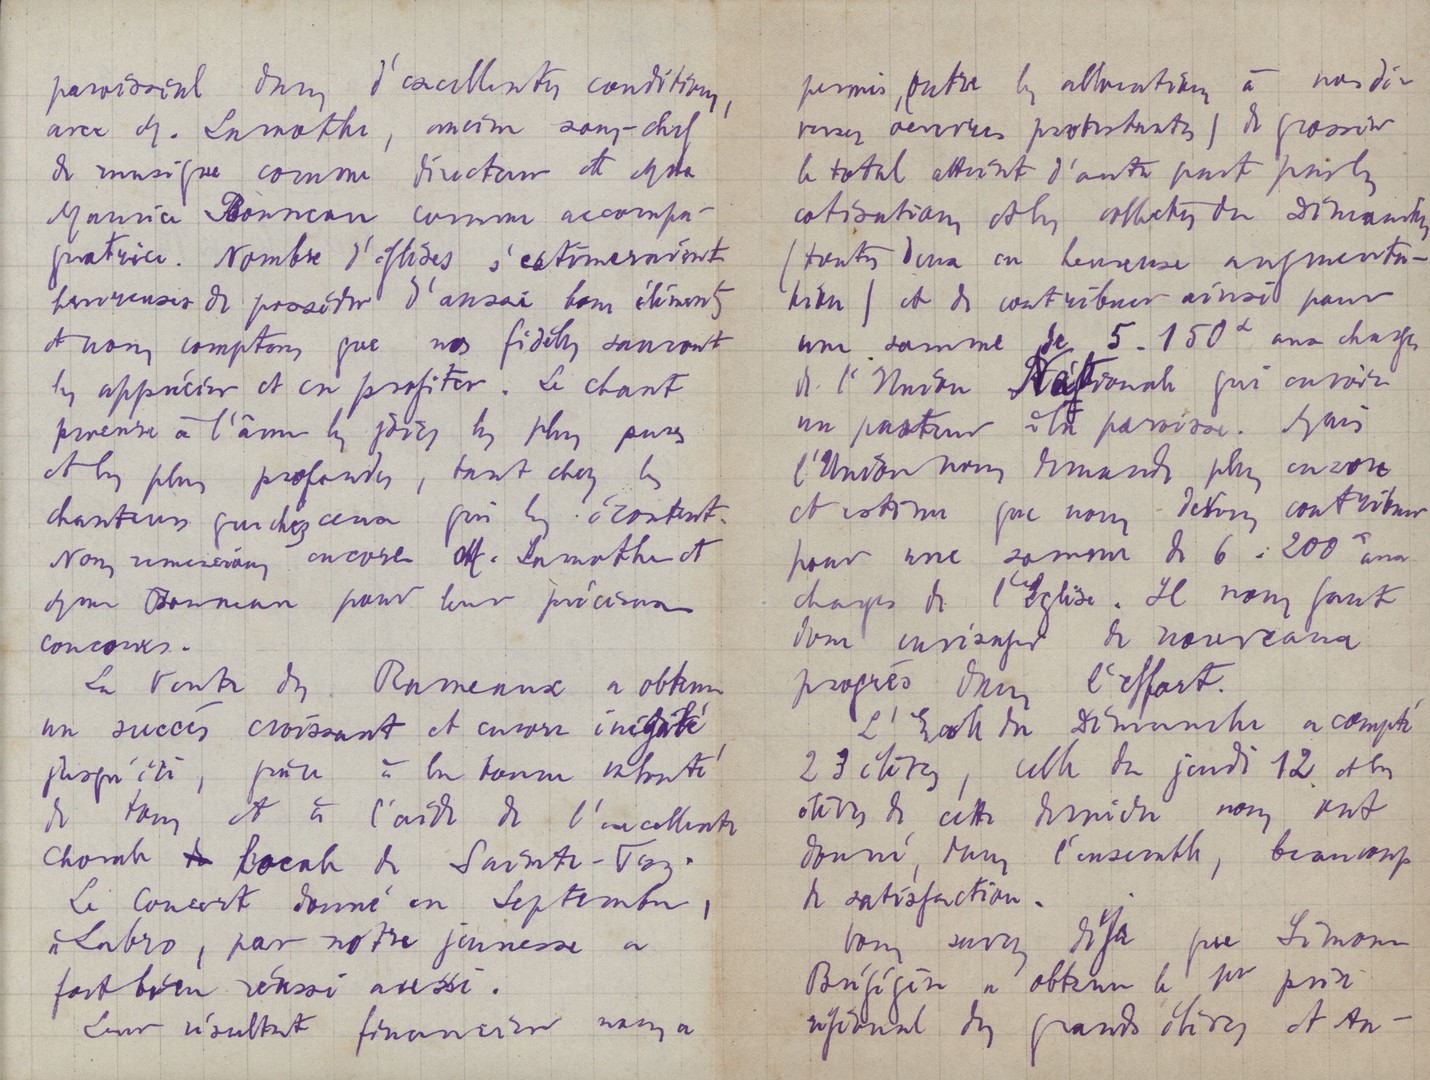 paroissial dans d'excellentes conditions,
avec M. Lamothe, ancien sous-chef
de musique comme directeur et Mme
Maurice Bonneau comme accompa-
gnatrice. Nombre d'églises s'estimeraient
heureuses de posséder d'aussi bons éléments
et nous comptons que nos fidèles sauront
les apprécier et en profiter. Le chant
procure à l'âme les joies les plus pures
et les plus profondes, tant chez les
chanteurs que chez ceux qui les écoutent.
Nous remercions encore M. Lamothe et
Mme Bonneau pour leur précieux
concours.
La Vente des Rameaux a obtenu
un succès croissant et encore inégalé
jusqu'ici, grâce à la bonne volonté
de tous et à l'aide de l'excellente
chorale locale de Sainte-Foy.
Le Concert donné en Septembre,
à Labro, par notre jeunesse a
fort bien réussi aussi.
Leur résultat financier nous a
permis, (outre les allocations à nos di-
verses oeuvres protestantes) de grossir
le total atteint d'autre part par les
cotisations et les collectes du Dimanche
(toutes deux en heureuse augmenta-
tion) et de contribuer ainsi pour
une somme de 5.150 aux charges
de l'Union Nationale qui envoie
un pasteur à la paroisse. Mais
l'Union nous demande plus encore
et estime que nous devons contribuer
pour une somme de 6.200 aux
charges de l'Eglise. Il nous faut
donc envisager de nouveaux
progrès dans l'effort.
L'Ecole du Dimanche a compté
23 élèves, celle du jeudi 12 et les
élèves de cette dernière nous ont
donné, dans l'ensemble, beaucoup
de satisfaction.
Vous savez déjà que Simone
a obtenu le 1er prix
régional des grands élèves et An-